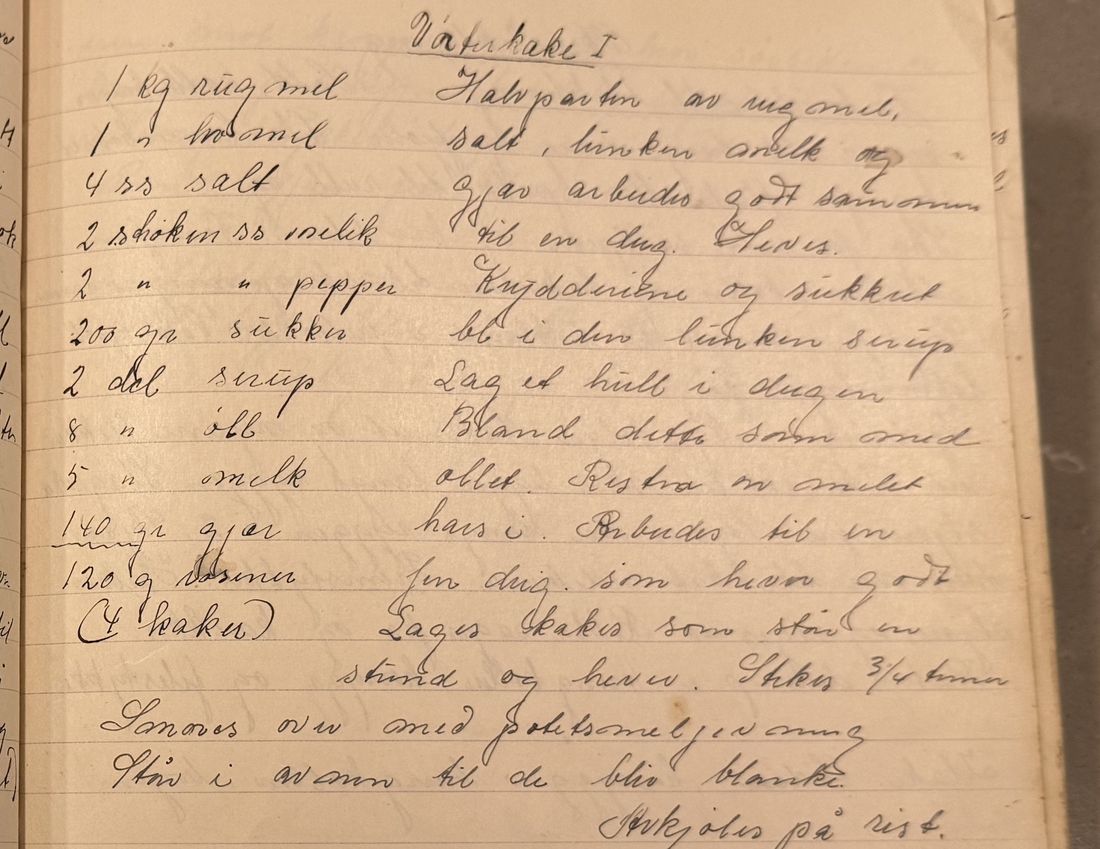 Vørterkake I
1 kg rugmel
1 " hv mel
4 ss salt
2 strøken ss nelik
2 " " pepper
200 gr sukker
2 del sirup
8 " øll
5 " melk
140 gr gjær
120 g rosiner
(4 kaker)
Halvparten av rugmel,
salt, lunken melk og
gjær arbeides godt sammen
til en deig. Heves.
Krydderiene og sukkret
bl i den lunken sirup
Lag et hull i deigen
Bland dette som med
øllet. Resten av melet
haes i. Arbeides til en
fin deig som hever godt
Lages kaker som står en
stund og hever. Stekes 3/4 timer
Smøres over med potetsmeljevning
Står i ovnen til de bliv blanke.
Avkjøles på rist.